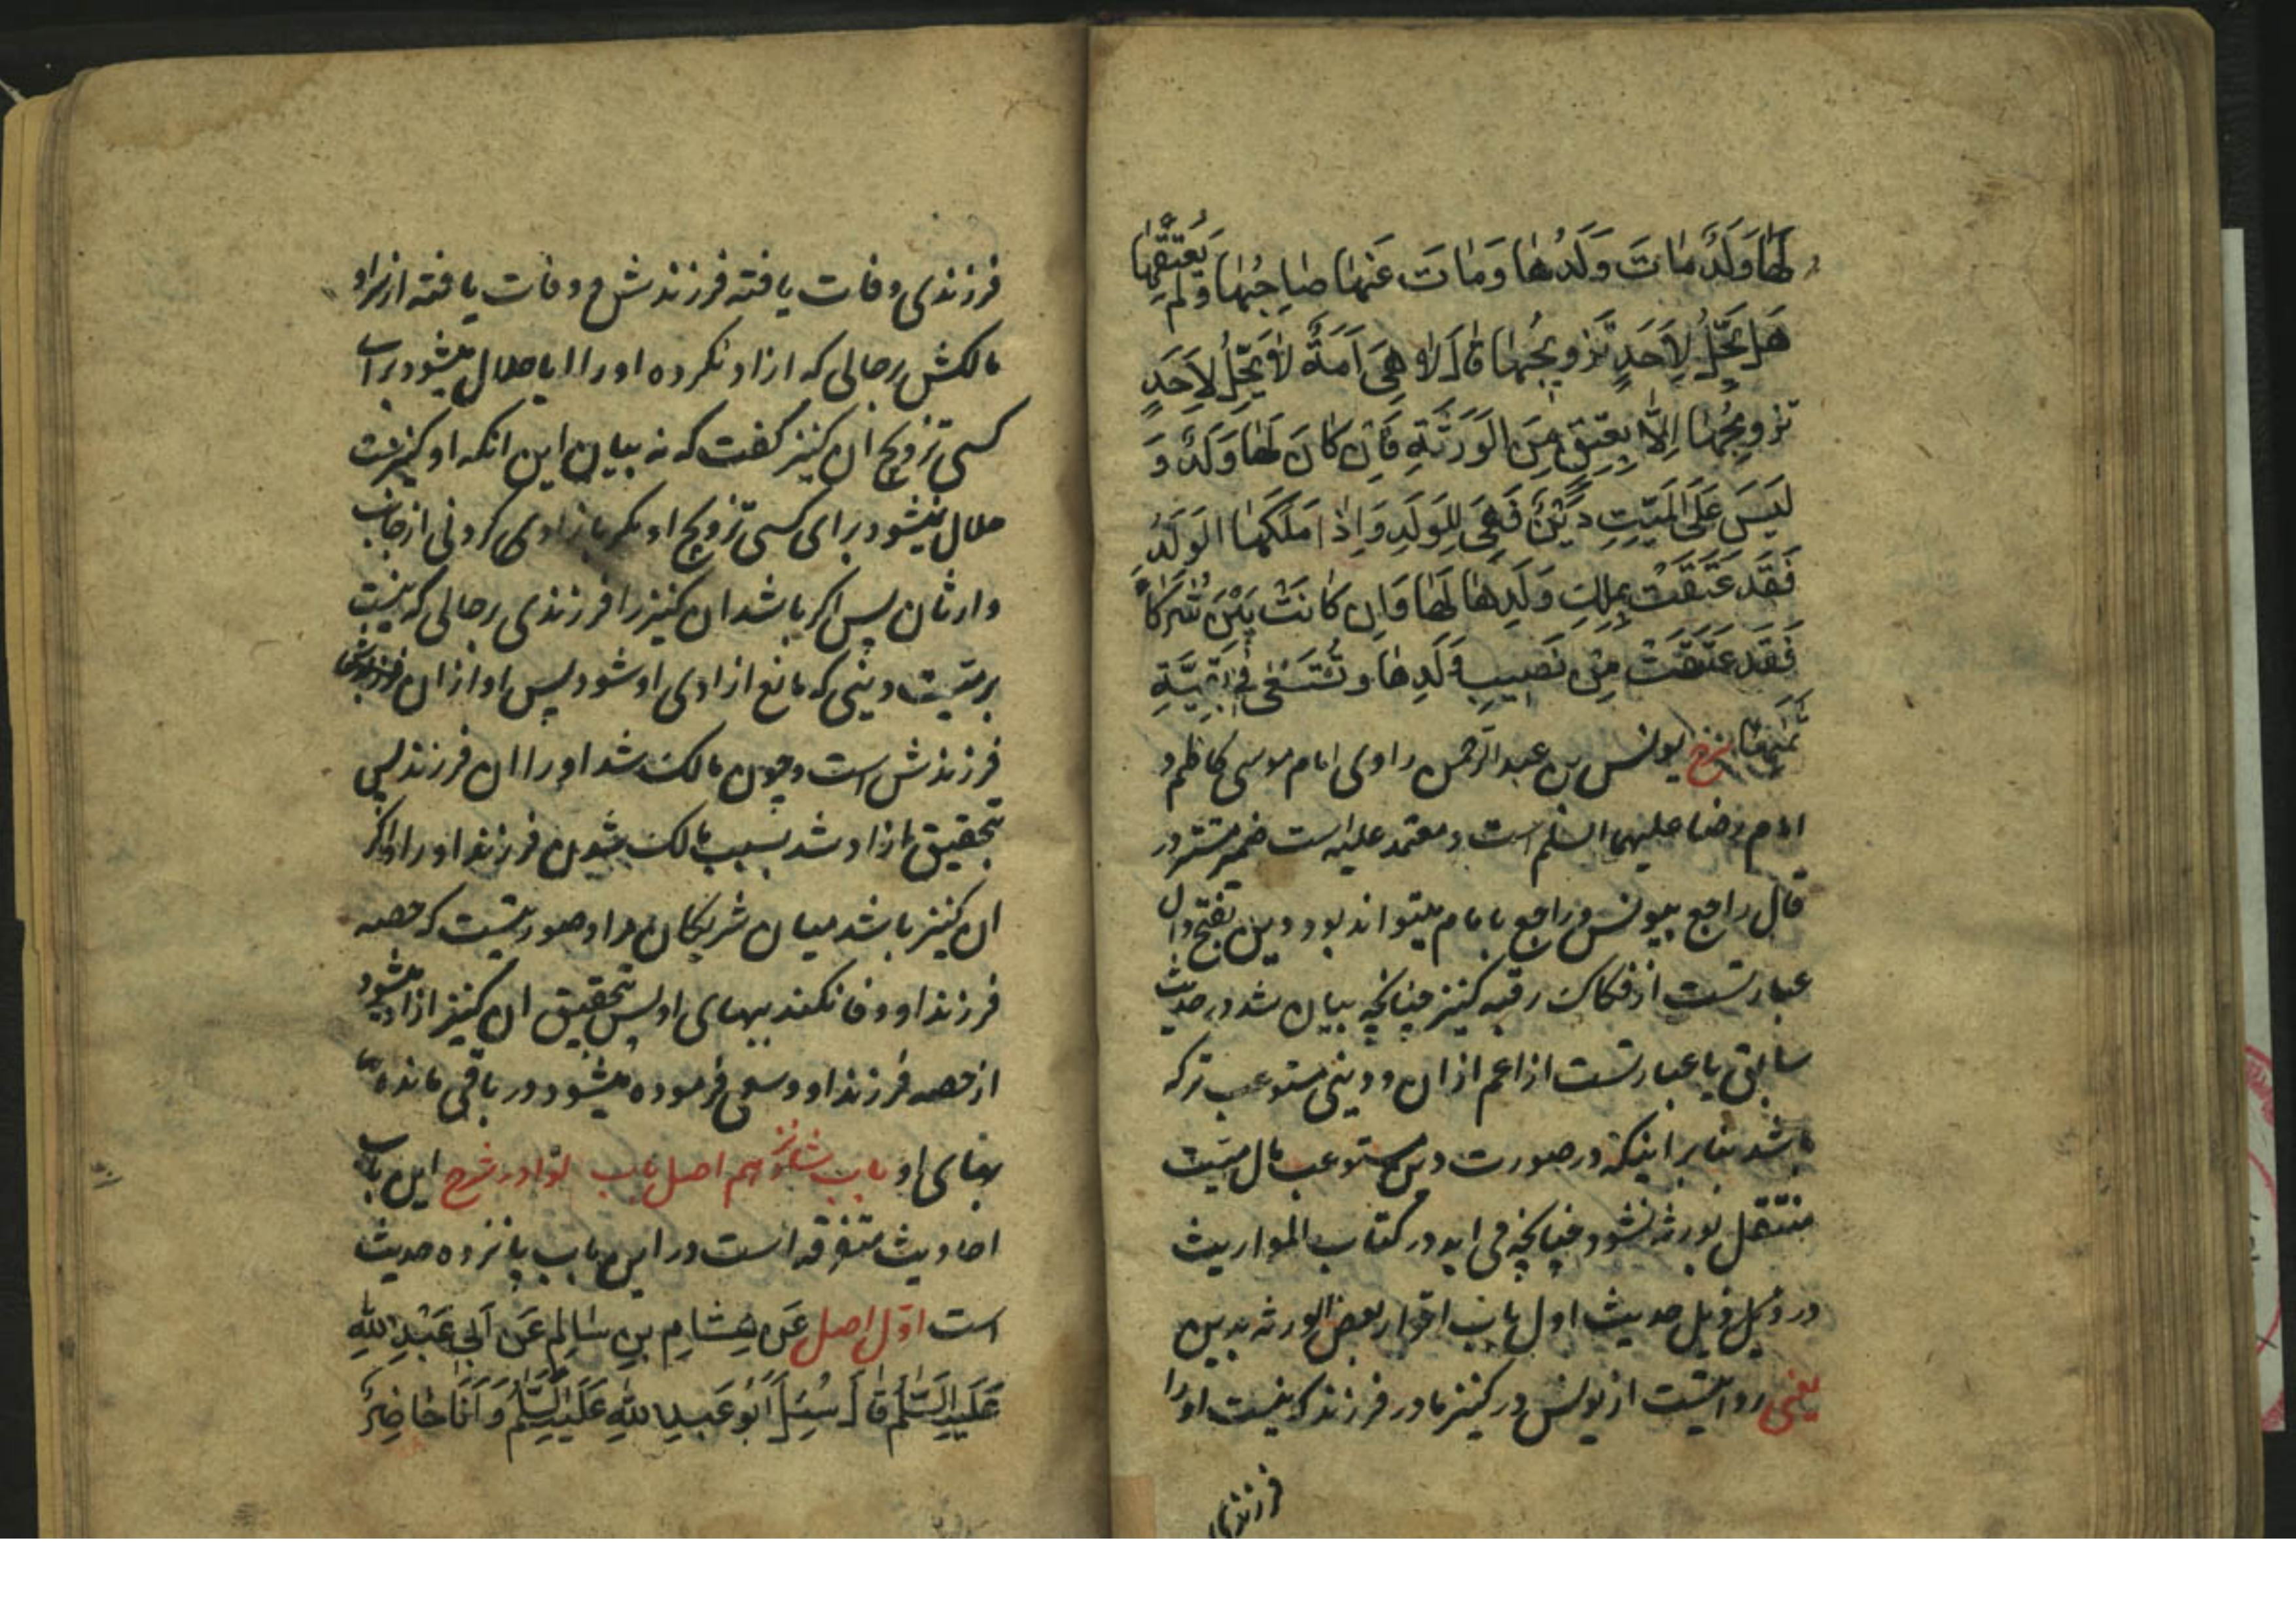 لَهَا وَلَدٌ مَاتَ وَلَدُهَا وَمَاتَ عَنْهَا صَاحِبُهَا وَلَمْ يُعْتِقْهَا
هَلْ يَحِلُّ لِأَحَدٍ تَزْوِيجُهَا قَالَ لَا هِيَ أَمَةٌ لَا يَحِلُّ لِأَحَدٍ
تَزْوِيجُهَا إِلَّا بِعِتْقٍ مِنَ الْوَرَثَةِ فَإِنْ كَانَ لَهَا وَلَدٌ وَ
لَيْسَ عَلَى الْمَيِّتِ دَيْنٌ فَهِيَ لِلْوَلَدِ وَإِذَا مَلَكَهَا الْوَلَدُ
فَقَدْ عَتَقَتْ بِمِلْكِ وَلَدِهَا لَهَا وَإِنْ كَانَتْ بَيْنَ شُرَكَاءَ
فَقَدْ عَتَقَتْ مِنْ نَصِيبِ وَلَدِهَا وَتُسْتَسْعَى فِي بَقِيَّةِ
ثَمَنِهَا شرح یونس بن عبد الرحمن راوی امام موسی کاظم و
امام رضا علیهما السلم است و معتمد علیه است ضمیر مستتر در
قال راجع بیونس و راجع بامام میتواند بود دین بفتح دال
عبارتست از فکاک رقبه کنیز چنانچه بیان شد در حدیث
سابق یا عبارتست از اعم از ان و دینی مستوعب ترکه
باشد بنابر اینکه در صورت دین مستوعب مال میت
منتقل بورثه نشود چنانچه می اید در کتاب المواریث
در ذیل حدیث اول باب اقرار بعض الورثه بدین
یعنی روایتست از یونس در کنیز مادر فرزند که نیست او را
فرزندی
فرزندی وفات یافته فرزندش و وفات یافته از نزد او
مالکش برحالی که ازاد نکرده او را ایا حلال میشود برای
کسی تزویج ان کنیز گفت که نه بیان این انکه او کنیزست
حلال نمیشود برای کسی تزویج او مکر بازادی کردنی از جانب
وارثان پس اکر باشد ان کنیز را فرزندی برحالی که نیست
بر میت دینی که مانع ازادی او شود پس او از ان
فرزندش است و چون مالک شد او را ان فرزند پس
بتحقیق ازاد شد بسبب مالک شدن فرزند او را و اکر
ان کنیز باشد میان شریکان مراد صورتیست که حصه
فرزند او وفا نکند ببهای او پس بتحقیق ان کنیز ازاد میشود
از حصه فرزند او و سعی فرموده میشود در باقی مانده
بهای او باب شانزدهم اصل باب نوادر شرح این باب
احادیث متفرقه است در این باب پانزده حدیث
است اول اصل عَنْ هِشَامِ بْنِ سَالِمٍ عَنْ أَبِي عَبْدِ اللهِ
عَلَيْهِ السَّلَمُ قَالَ سُئِلَ أَبُو عَبْدِ اللهِ عَلَيْهِ السَّلَمُ وَأَنَا حَاضِرٌ